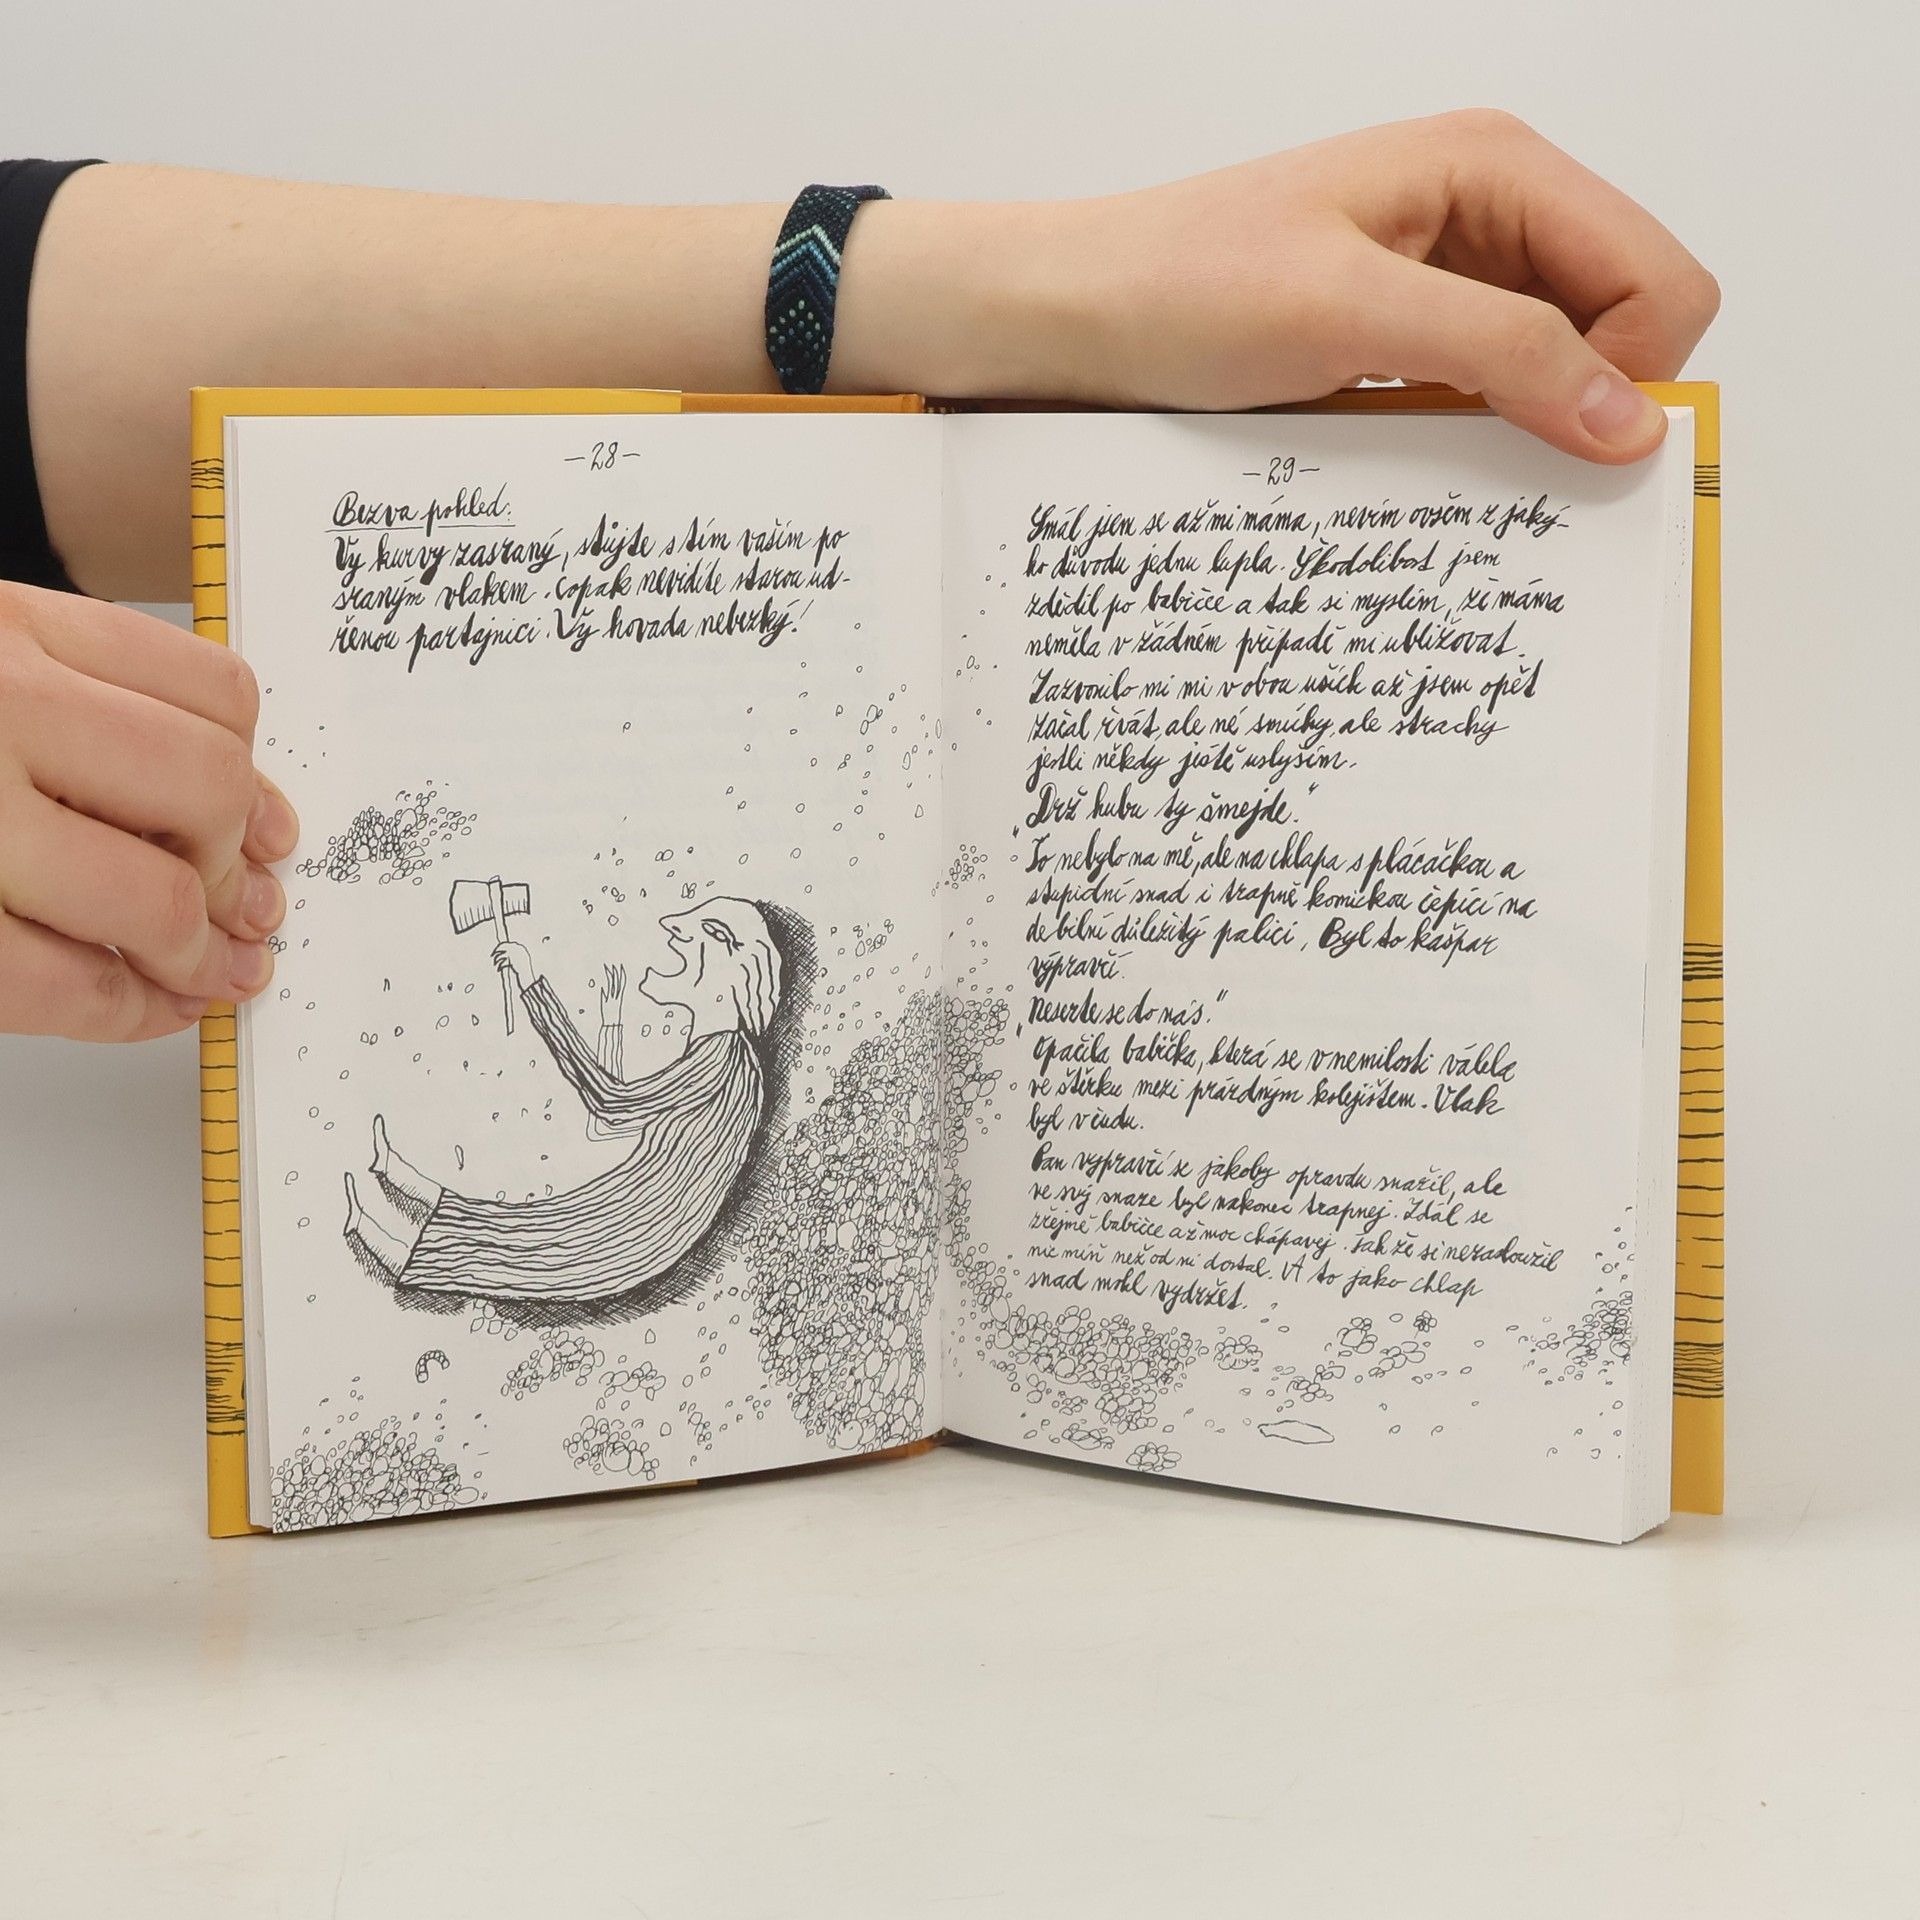 —28—
Bezva pohled:
Vy kurvy zasraný, stůjte s tím vaším po
sraným vlakem. Copak nevidíte starou ud-
řenou partajnici. Vy hovada nebezký!
—29—
Smál jsem se až mi máma, nevím ovšem z jaký-
ho důvodu jednu lupla. Škodolibost jsem
zdědil po babičce a tak si myslím, že máma
neměla v žádném případě mi ubližovat.
Zazvonilo mi mi v obou uších až jsem opět
začal řvát, ale né smíchy, ale strachy
jestli někdy ještě uslyším.
„Drž hubu ty šmejde.“
To nebylo na mě, ale na chlapa s plácačkou a
stupidní snad i trapně komickou čepicí na
debilní důležitý palici, Byl to kašpar
výpravčí.
„Neserte se do nás.“
Opáčila babička, která se v nemilosti válela
ve štěrku mezi prázdným kolejištěm. Vlak
byl v čudu.
Pan výpravčí se jakoby opravdu snažil, ale
ve svý snaze byl nakonec trapnej. Zdál se
zřejmě babičce až moc chápavej. Tak že si nezasloužil
nic míň než od ní dostal. A to jako chlap
snad mohl vydržet.